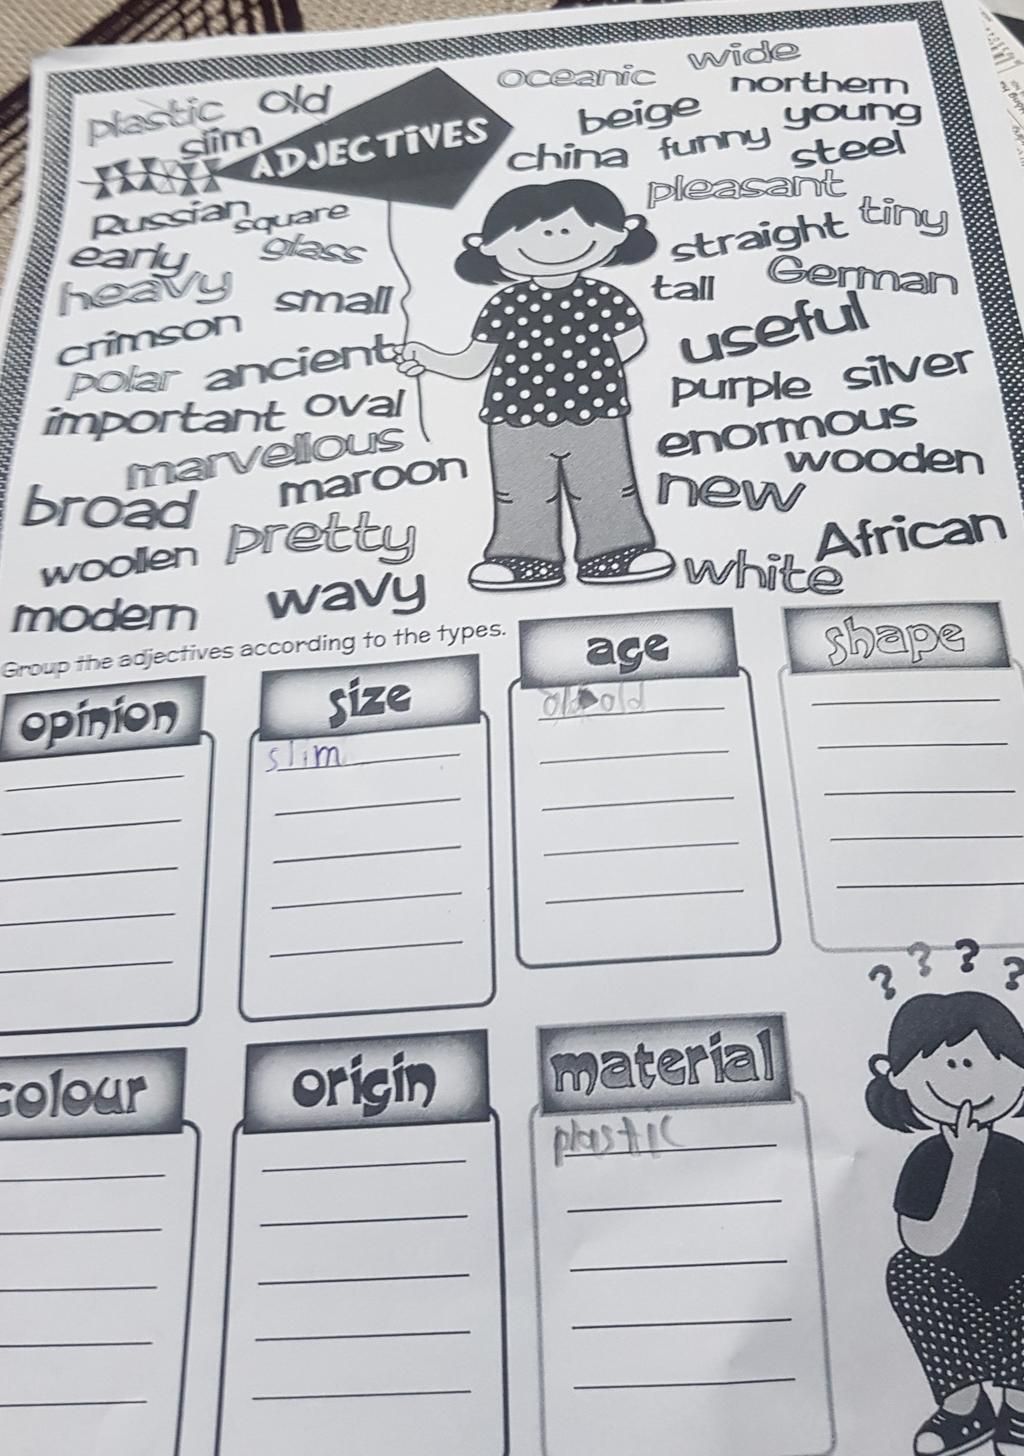 plastic old
slim
ADJECTIVES
Russian square
early glass
heavy small
crimson
polar ancient
important oval
marvellous
broad maroon
woollen pretty
modern wavy
oceanic wide
northern
beige young
china funny steel
pleasant
straight tiny
tall German
useful
purple silver
enormous
wooden
new
African
white
Group the adjectives according to the types.
opinion
size
slim
age
old old
shape
colour
origin
material
plastic
? ? ? ?